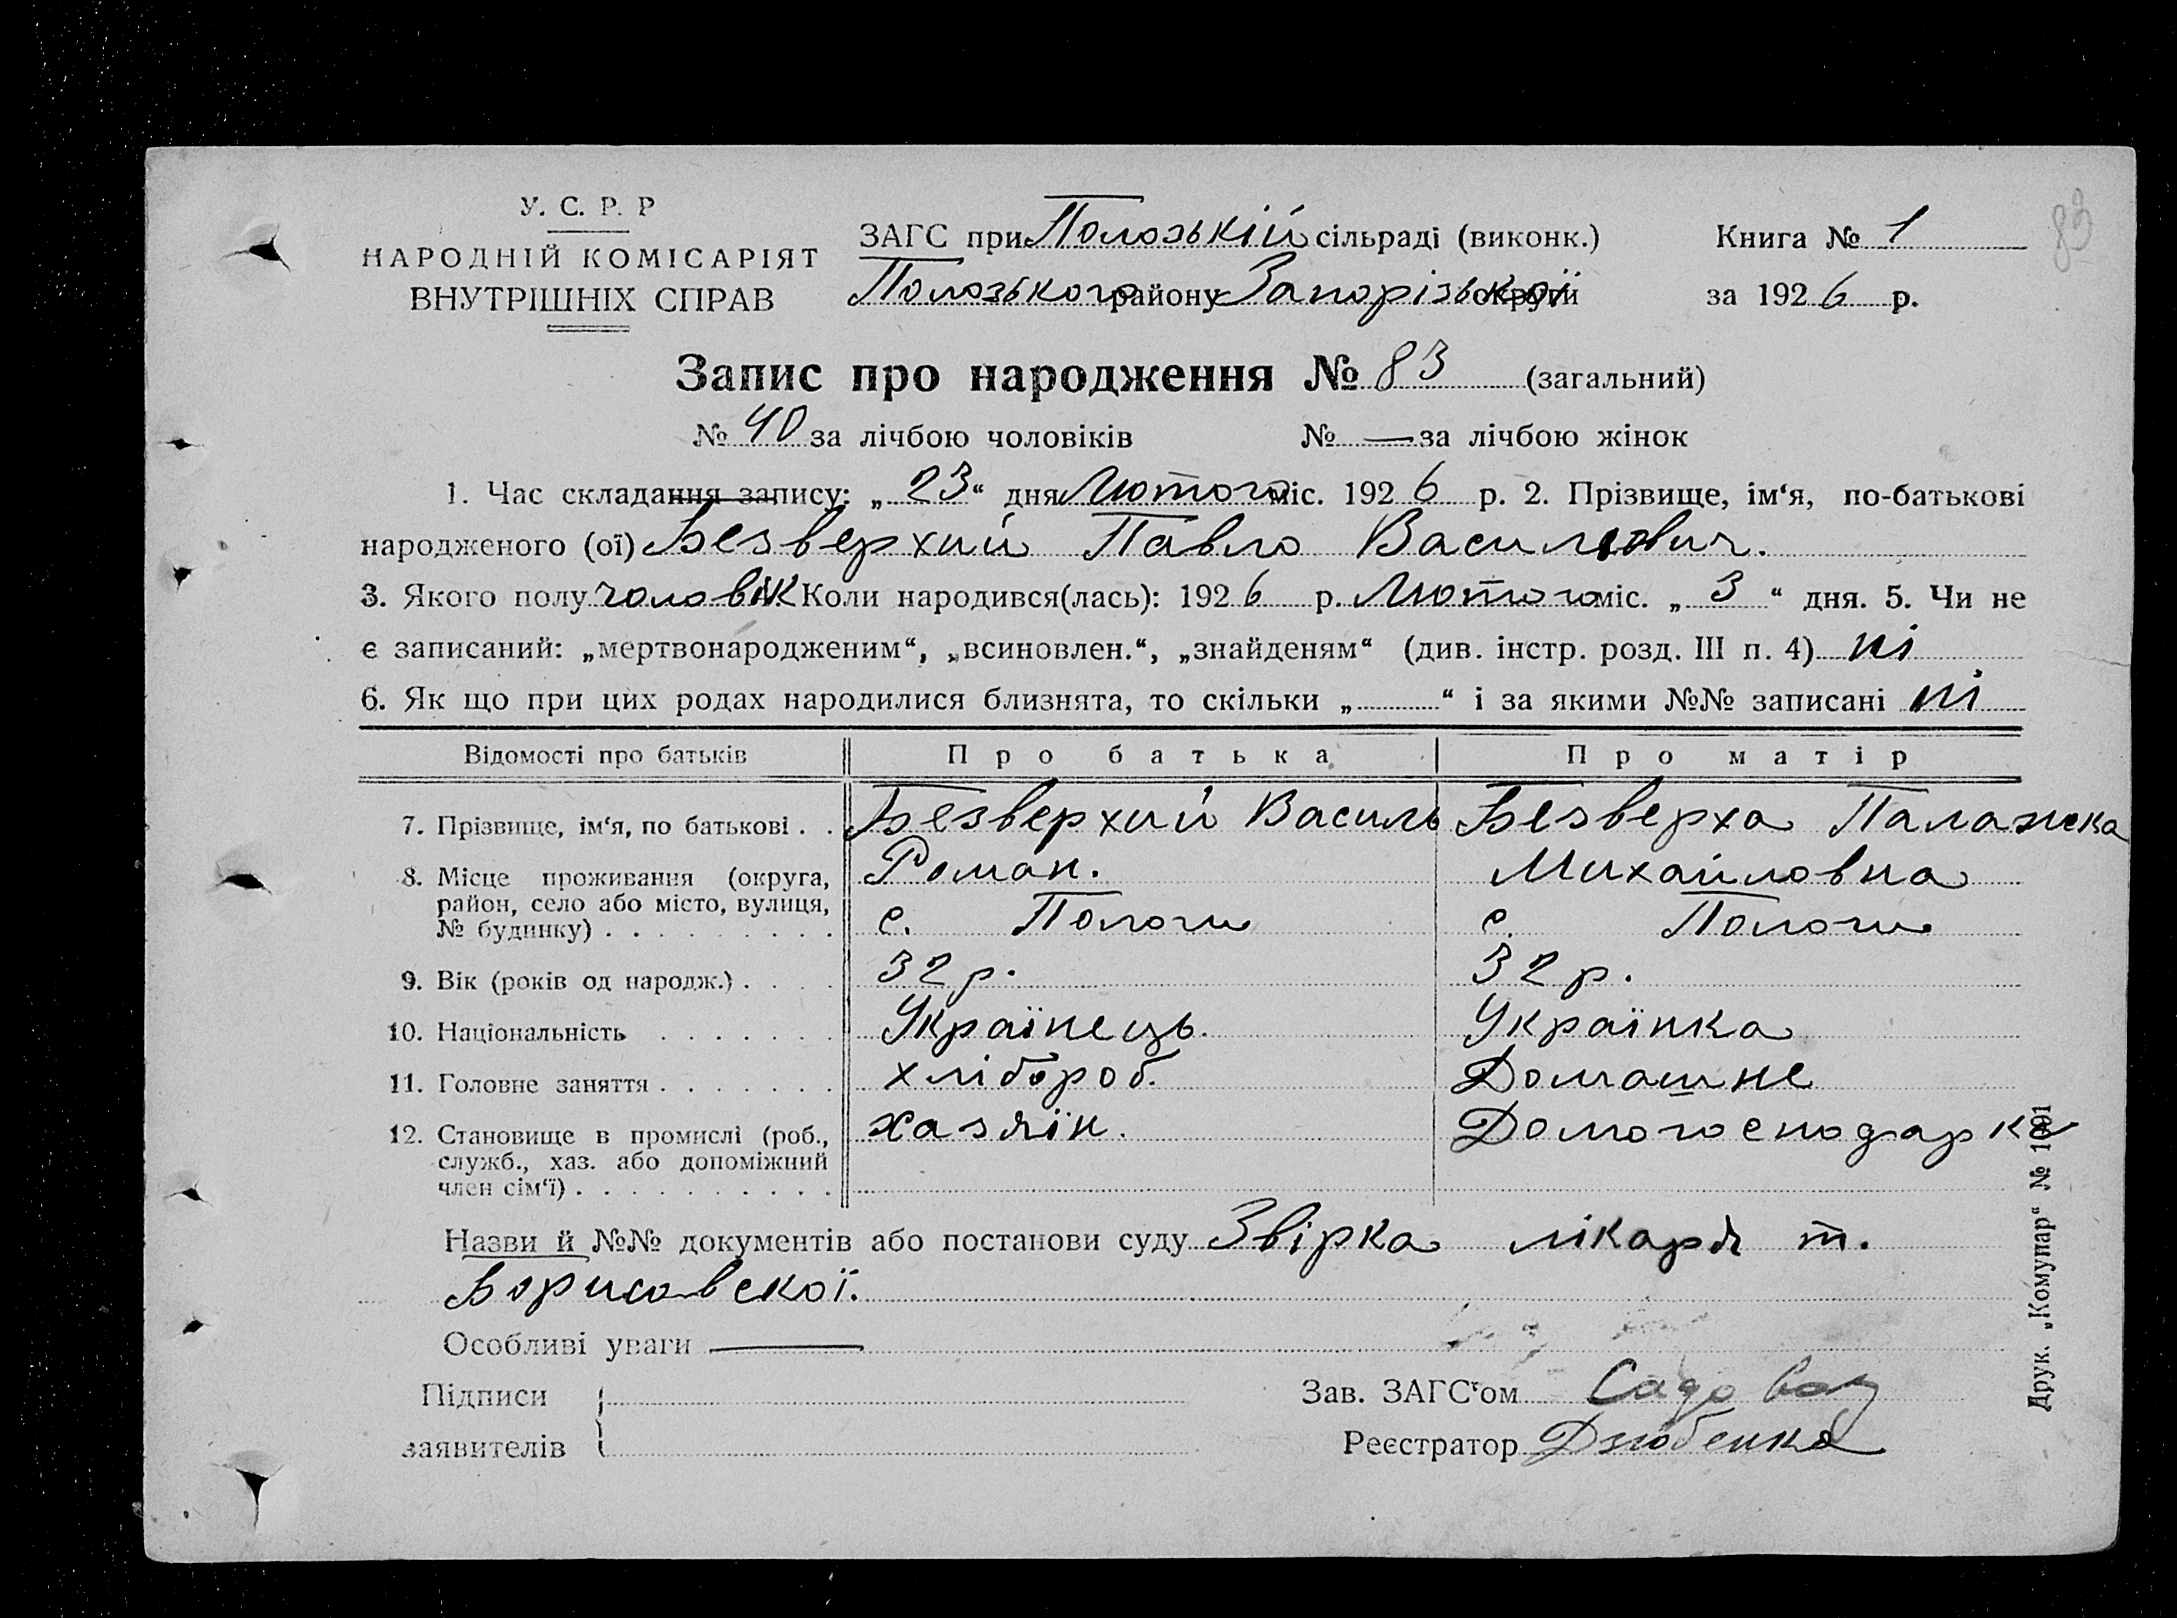 У. С. Р. Р
НАРОДНІЙ КОМІСАРІЯТ
ВНУТРІШНІХ СПРАВ
ЗАГС при Полозькій сільраді (виконк.)
Полозького району Запорізької округи
Книга № 1
за 1926 р.
83
Запис про народження № 83 (загальний)
№ 40 за лічбою чоловіків № — за лічбою жінок
1. Час складання запису: „ 23 “ дня Лютого міс. 1926 р. 2. Прізвище, ім‘я, по-батькові
народженого (ої) Безверхий Павло Василович.
3. Якого полу чоловік Коли народився(лась): 1926 р. Лютого міс. „ 3 “ дня. 5. Чи не
є записаний: „мертвонародженим“, „всиновлен.“, „знайденям“ (див. інстр. розд. III п. 4) ні
6. Як що при цих родах народилися близнята, то скільки „ “ і за якими №№ записані ні
Відомості про батьків Про батька Про матір
7. Прізвище, ім‘я, по батькові . . Безверхий Василь Безверха Палажка
Роман. Михайловна
8. Місце проживання (округа,
район, село або місто, вулиця,
№ будинку) . . . . . . . . . с. Пологи с. Пологи
9. Вік (років од народж.) . . . . 32 р. 32 р.
10. Національність . . . . . . . Українець. Українка
11. Головне заняття . . . . . . . хлібороб. Домашнє
12. Становище в промислі (роб., хазяїн. Домогосподарка
служб., хаз. або допоміжний
член сім‘ї) . . . . . . . . . .
Назви й №№ документів або постанови суду Звірка лікаря т.
Борисовскої.
Особливі уваги —
Підписи
заявителів
Зав. ЗАГС‘ом
Реєстратор Дзюбенко
Друк. „Комунар“ № 1091